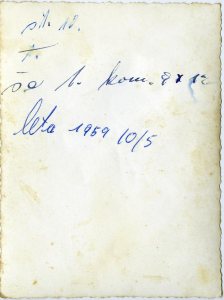 sl. 12.
1.
za 1. kom. 9 x 12
leta 1959 10/5